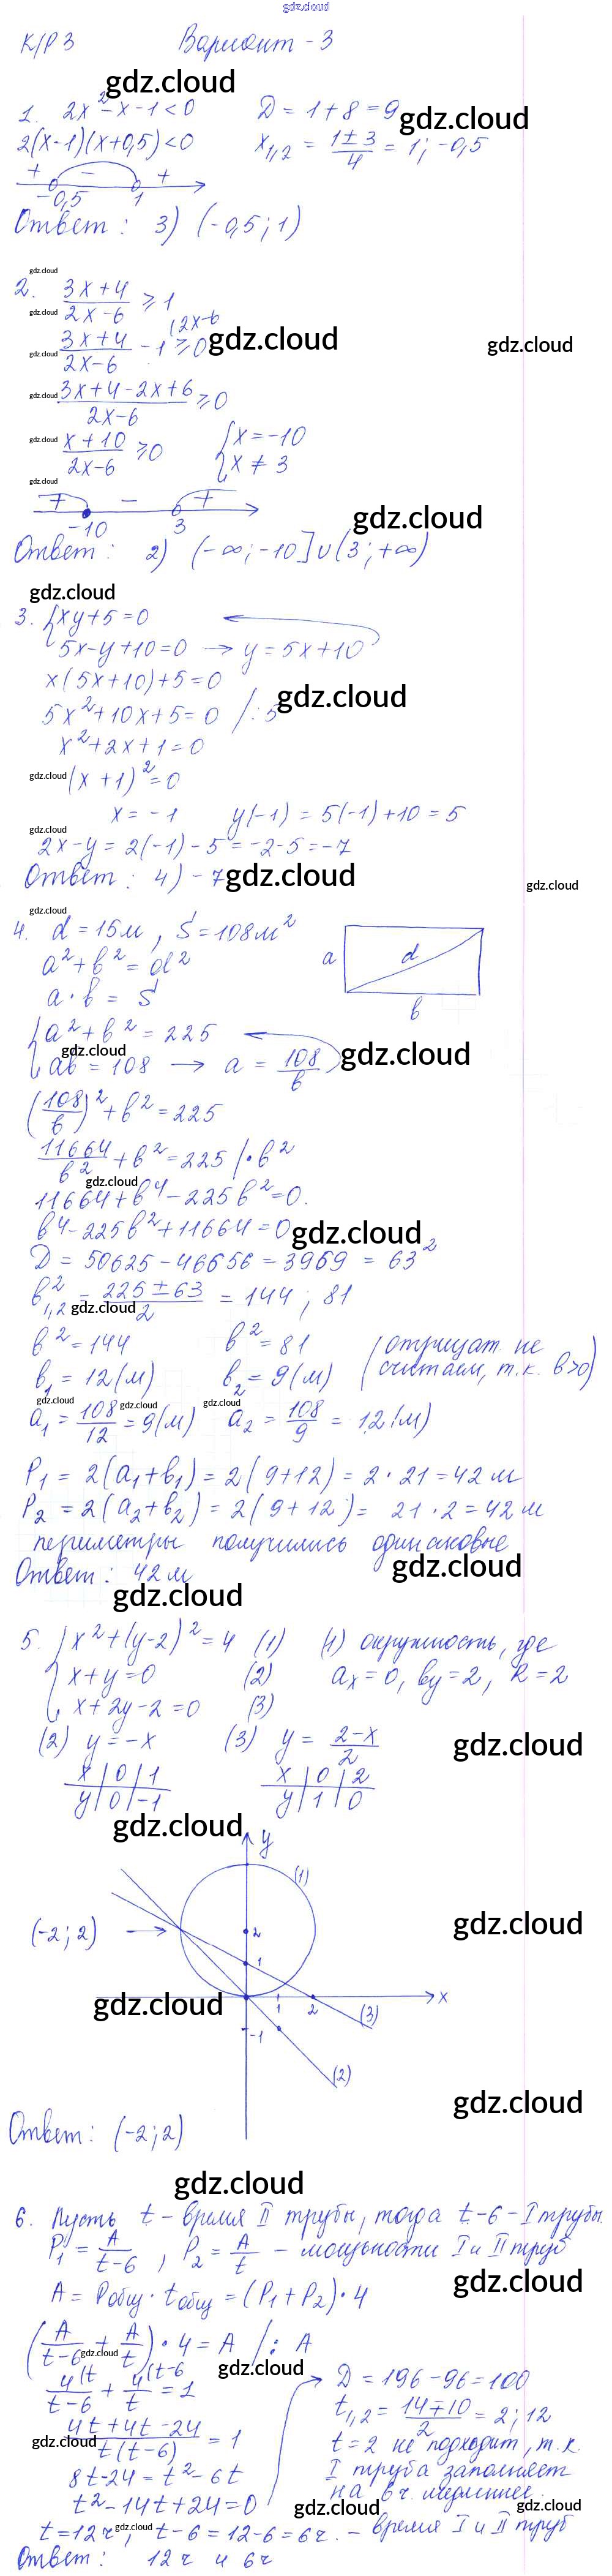 gdz.cloud
К/Р 3 Вариант - 3
gdz.cloud
1. 2x² - x - 1 < 0 D = 1 + 8 = 9
gdz.cloud
2(x-1)(x+0,5) < 0 x₁,₂ = (1 ± 3)/4 = 1; -0,5
+ - +
-0,5 1
Ответ: 3) (-0,5; 1)
gdz.cloud
2. (3x+4)/(2x-6) ⩾ 1
gdz.cloud
(2x-6
gdz.cloud (3x+4)/(2x-6) - 1 ⩾ 0 gdz.cloud gdz.cloud
gdz.cloud (3x+4-2x+6)/(2x-6) ⩾ 0
gdz.cloud (x+10)/(2x-6) ⩾ 0 { x = -10
x ≠ 3
gdz.cloud
+ - +
-10 3 gdz.cloud
Ответ: 2) (-∞; -10] ∪ (3; +∞)
gdz.cloud
3. { xy+5=0
5x-y+10=0 → y = 5x+10
x(5x+10)+5=0
gdz.cloud
5x²+10x+5=0 /:5
x²+2x+1=0
gdz.cloud (x+1)²=0
x = -1 y(-1) = 5(-1)+10 = 5
gdz.cloud
2x-y = 2(-1)-5 = -2-5 = -7
Ответ: 4) -7 gdz.cloud gdz.cloud
gdz.cloud
4. d = 15м, S = 108м²
a²+b² = d² a d
a·b = S b
{ a²+b² = 225
gdz.cloud gdz.cloud
ab = 108 → a = 108/b
(108/b)²+b² = 225
11664/b² + b² = 225 /·b²
gdz.cloud
11664+b⁴-225b²=0.
b⁴-225b²+11664=0 gdz.cloud
D = 50625-46656 = 3969 = 63²
b²₁,₂ = (225±63)/2 = 144; 81
gdz.cloud
b²=144 b²=81 (отрицат. не
b₁ = 12(м) b₂ = 9(м) считаем, т.к. b>0)
gdz.cloud gdz.cloud gdz.cloud
a₁ = 108/12 = 9(м) a₂ = 108/9 = 12(м)
P₁ = 2(a₁+b₁) = 2(9+12) = 2·21 = 42 м
P₂ = 2(a₂+b₂) = 2(9+12) = 21·2 = 42 м
периметры получились одинаковые
Ответ: 42 м gdz.cloud
gdz.cloud
5. { x²+(y-2)²=4 (1) (1) окружность, где
x+y=0 (2) aₓ=0, b_y=2, R=2
x+2y-2=0 (3)
(2) y = -x (3) y = (2-x)/2 gdz.cloud
x | 0 | 1 x | 0 | 2
y | 0 | -1 y | 1 | 0
gdz.cloud
y
(1)
(-2; 2) → 2 gdz.cloud
1
gdz.cloud 1 2 x
(3)
-1
(2)
gdz.cloud
Ответ: (-2; 2)
gdz.cloud
6. Пусть t - время II трубы, тогда t-6 - I трубы.
P₁ = A/(t-6), P₂ = A/t - мощности I и II труб
gdz.cloud
A = Pобщ · tобщ = (P₁+P₂)·4
(A/(t-6) + A/t)·4 = A /: A
gdz.cloud gdz.cloud
4(t/(t-6) + 4(t-6/t = 1 D = 196-96 = 100
t₁,₂ = (14∓10)/2 = 2; 12
(4t+4t-24)/(t(t-6)) = 1 t=2 не подходит, т.к.
gdz.cloud
8t-24 = t²-6t I труба заполняет
t²-14t+24=0 на 6 ч. медленнее.
gdz.cloud gdz.cloud
t=12 ч, t-6 = 12-6 = 6 ч. - время I и II труб
gdz.cloud
Ответ: 12 ч и 6 ч
gdz.cloud